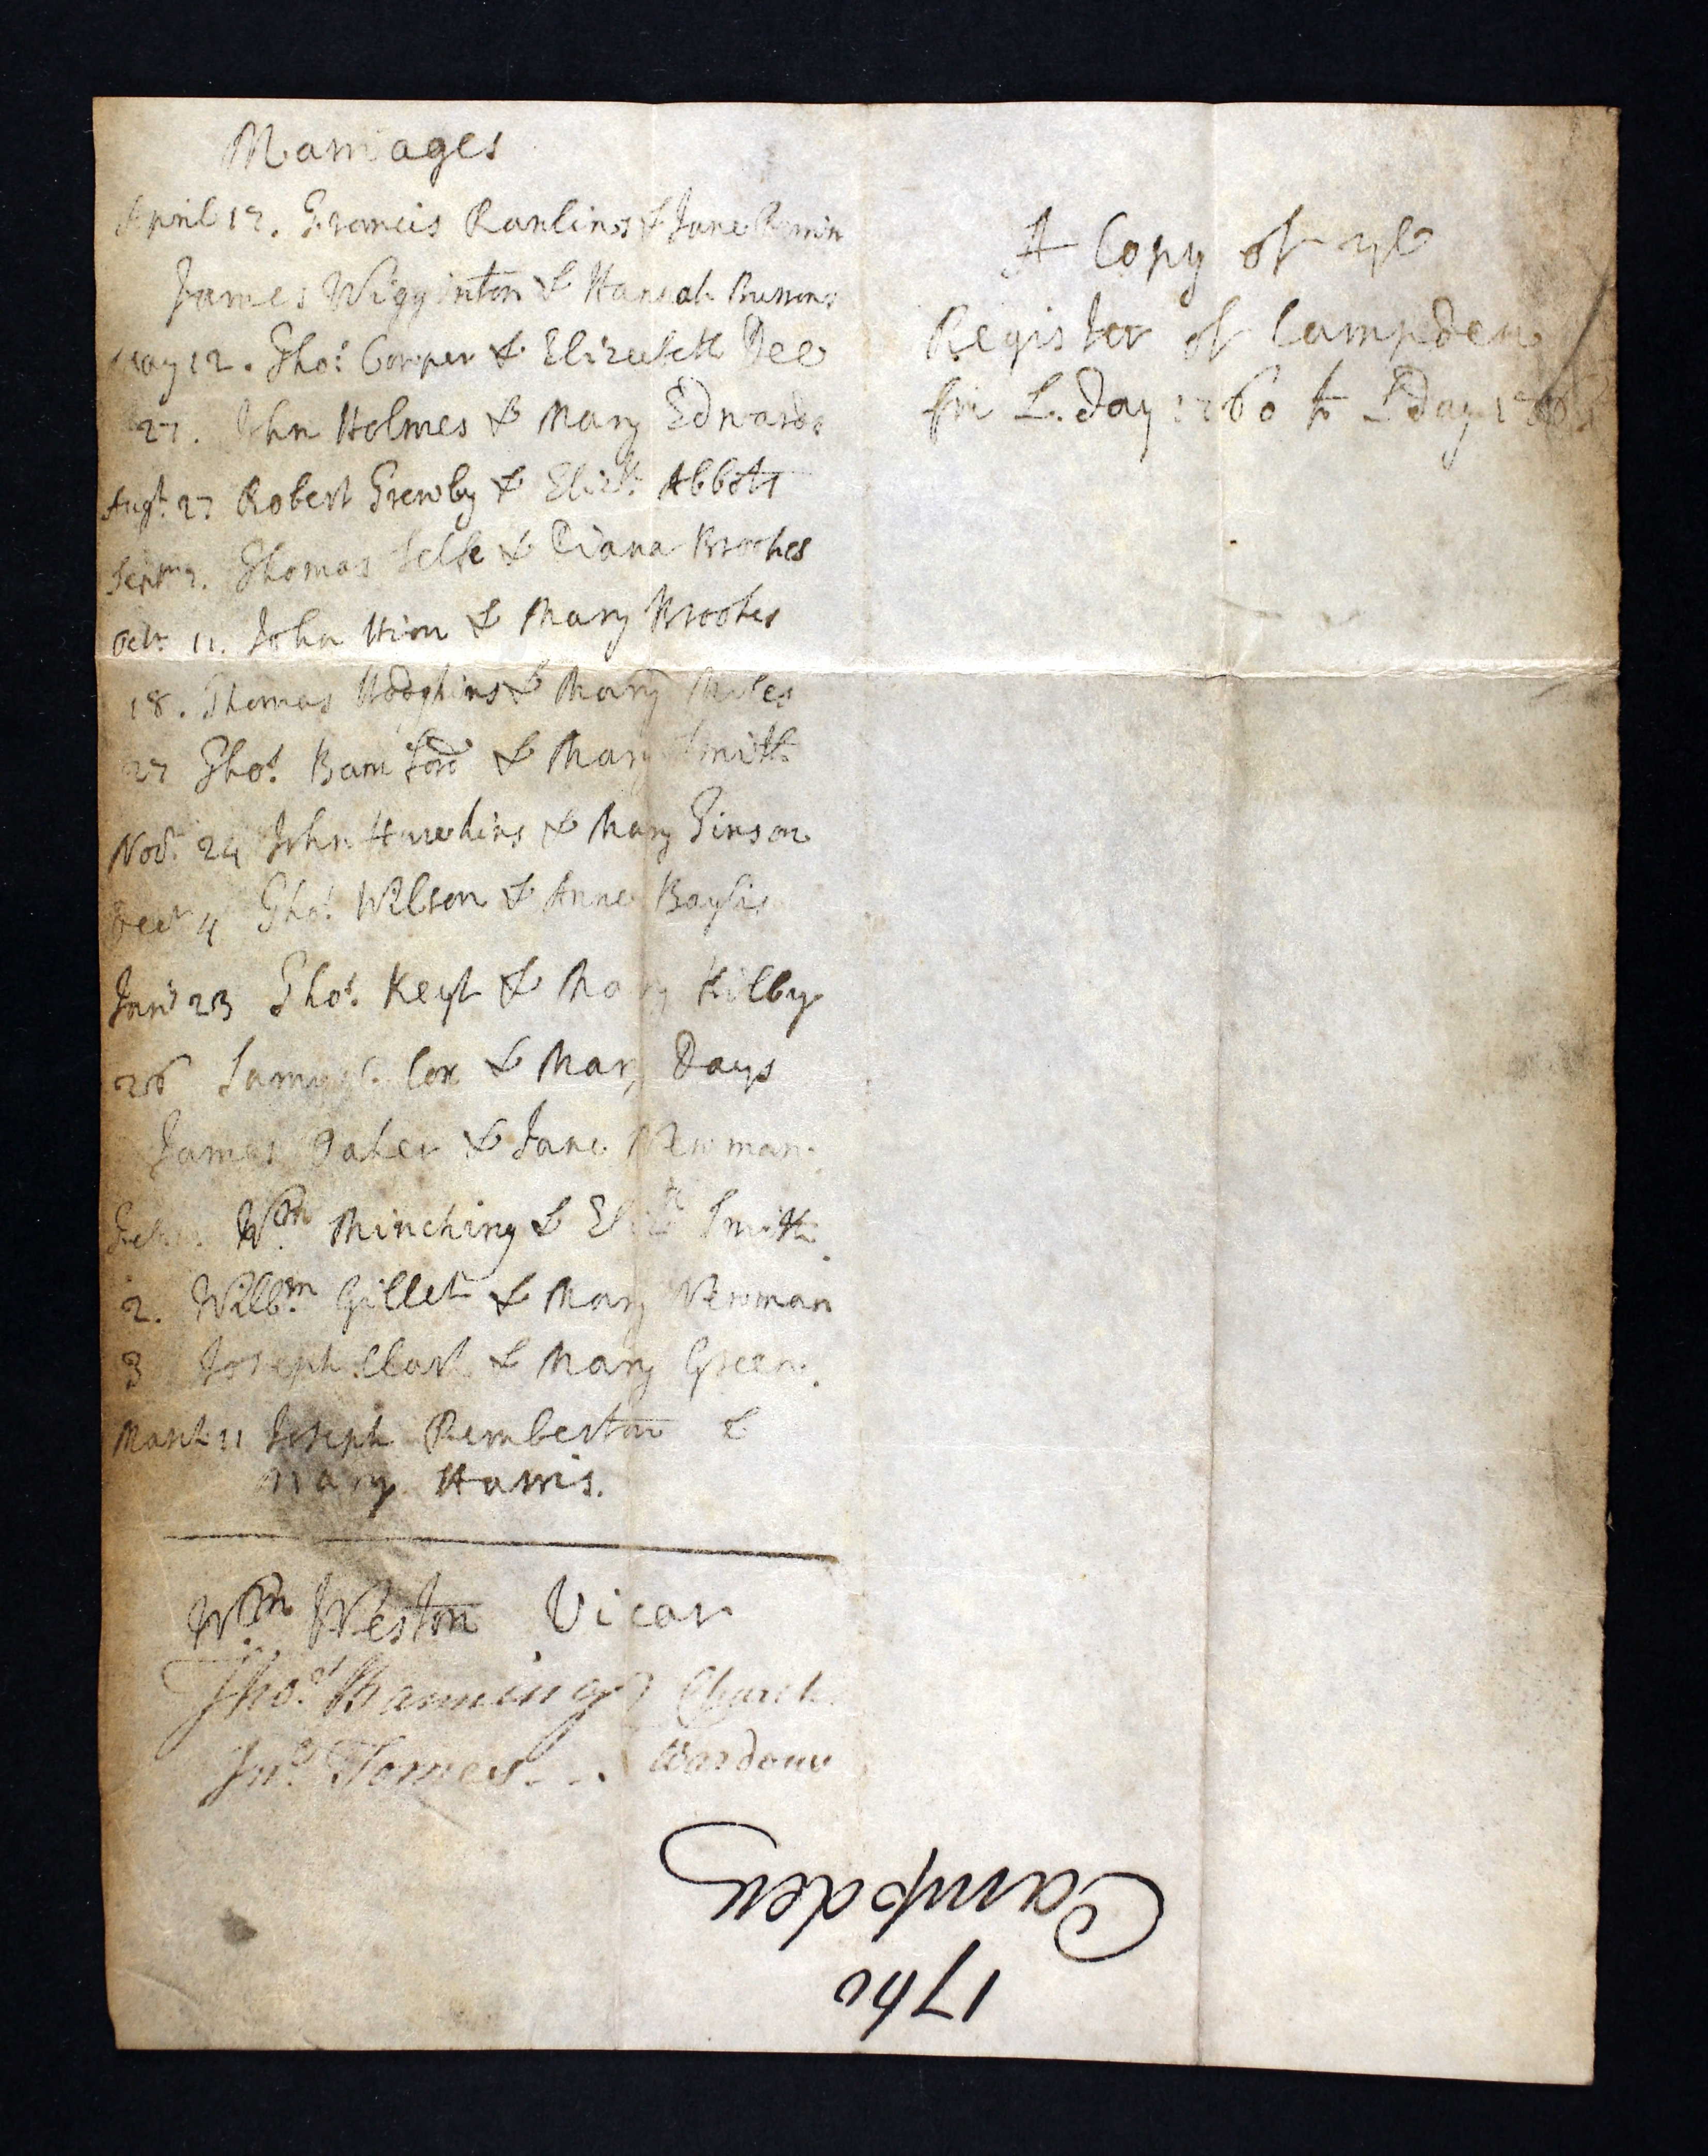 Marriages
April 12. Francis Rawlins & Jane
James Wigginton & Hannah
May 12. Thos. Cowper & Elizabeth Dee
27. John Holmes & Mary Edwards
Augt. 27 Robert Grewby & Elizth. Abbott
Septr. Thomas Selfe & Diana Brookes
Octr. 11. John Hirn & Mary Brookes
18. Thomas Hodgkins & Mary Miles
27 Thos. Bamford & Mary Smith
Novr. 24 John Hawkins & Mary Ginson
Decr. 4 Thos. Wilson & Anne Baylis
Janry 23 Thos. Keyt & Mary Kilby
26 Samuel Cox & Mary Days
James & Jane Newman.
Febr. Wm. Minching & Elizth Smith.
2. Willm. Gillet & Mary Newman
3 Joseph Clark & Mary Green.
March 11 Joseph Pemberton &
Mary Harris.
Wm Weston Vicar
Thos. Manning Church
Jno. Tomes Wardens
A Copy of ye
Register of Campden
fm L. day 1760 to L day
Campden
1760